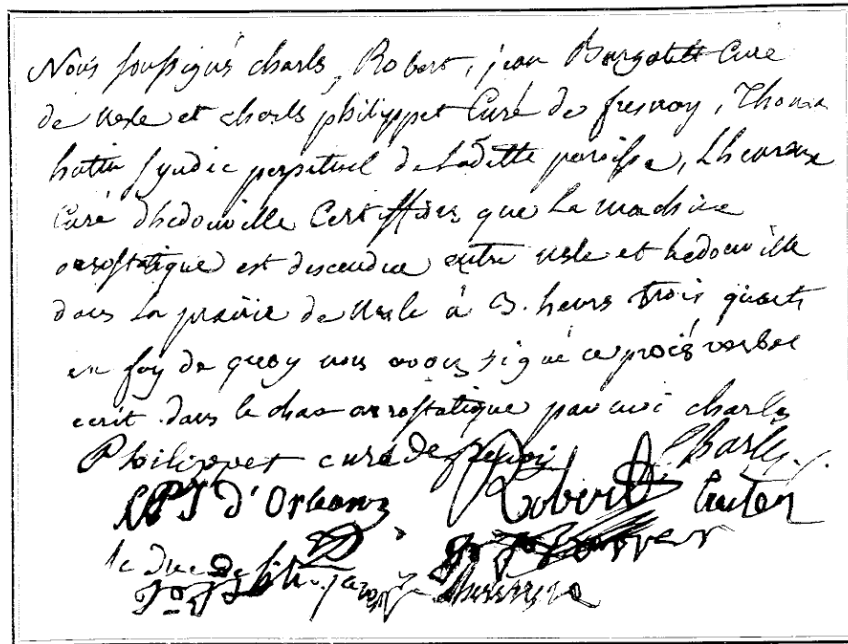 Nous soussignés charls, Robert, jean Burgotett Curé
de nesle et charls philippet Curé de fresnoy, Thomas
hutin syndic perpetuel de Laditte paroisse, Lheureux
Curé dhedouville Certiffions que La machine
aerostatique est descendue entre nesle et hedouville
dans la prairie de Nesle à 3. heurs trois quarts
en foy de quoy nous avons signé ce procés verbal
ecrit dans le char aerostatique par moi charls
Philippet curé de fresnoi Charles
LPJ d'Orleans Robert hutin
le Duc de fitz-james
Lheureux